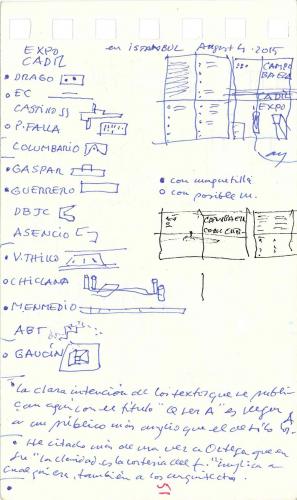 EXPO
CADIZ
en ISTANBUL August 4. 2015
DRAGO
EC
CASTINO SS
P. FALLA
COLUMBARIO
GASPAR
GUERRERO
DBJC
ASENCIO
V. THILLO
CHICLANA
MENMEDIO
ABT
GAUCIN
CAMPO
BAEZA
CADIZ
EXPO
• con maquetilla
o con posible m.
CAMPO BAEZA
• La clara intención de los textos que se publi-
can aquí con el título "Q ser A" es llegar
a un público más amplio que el de solo
• He citado más de una vez a Ortega que en
su "la claridad es la cortesía del f." implica a
cualquiera, también a los arquitectos.